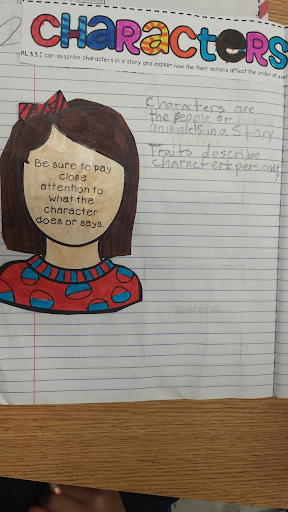 CHARACTERS
RL.3.3 I can describe characters in a story and explain how the their actions affect the order of
Be sure to pay
close
attention to
what the
character
does or says.
Characters are
the people or
animals in a Story
Traits describe